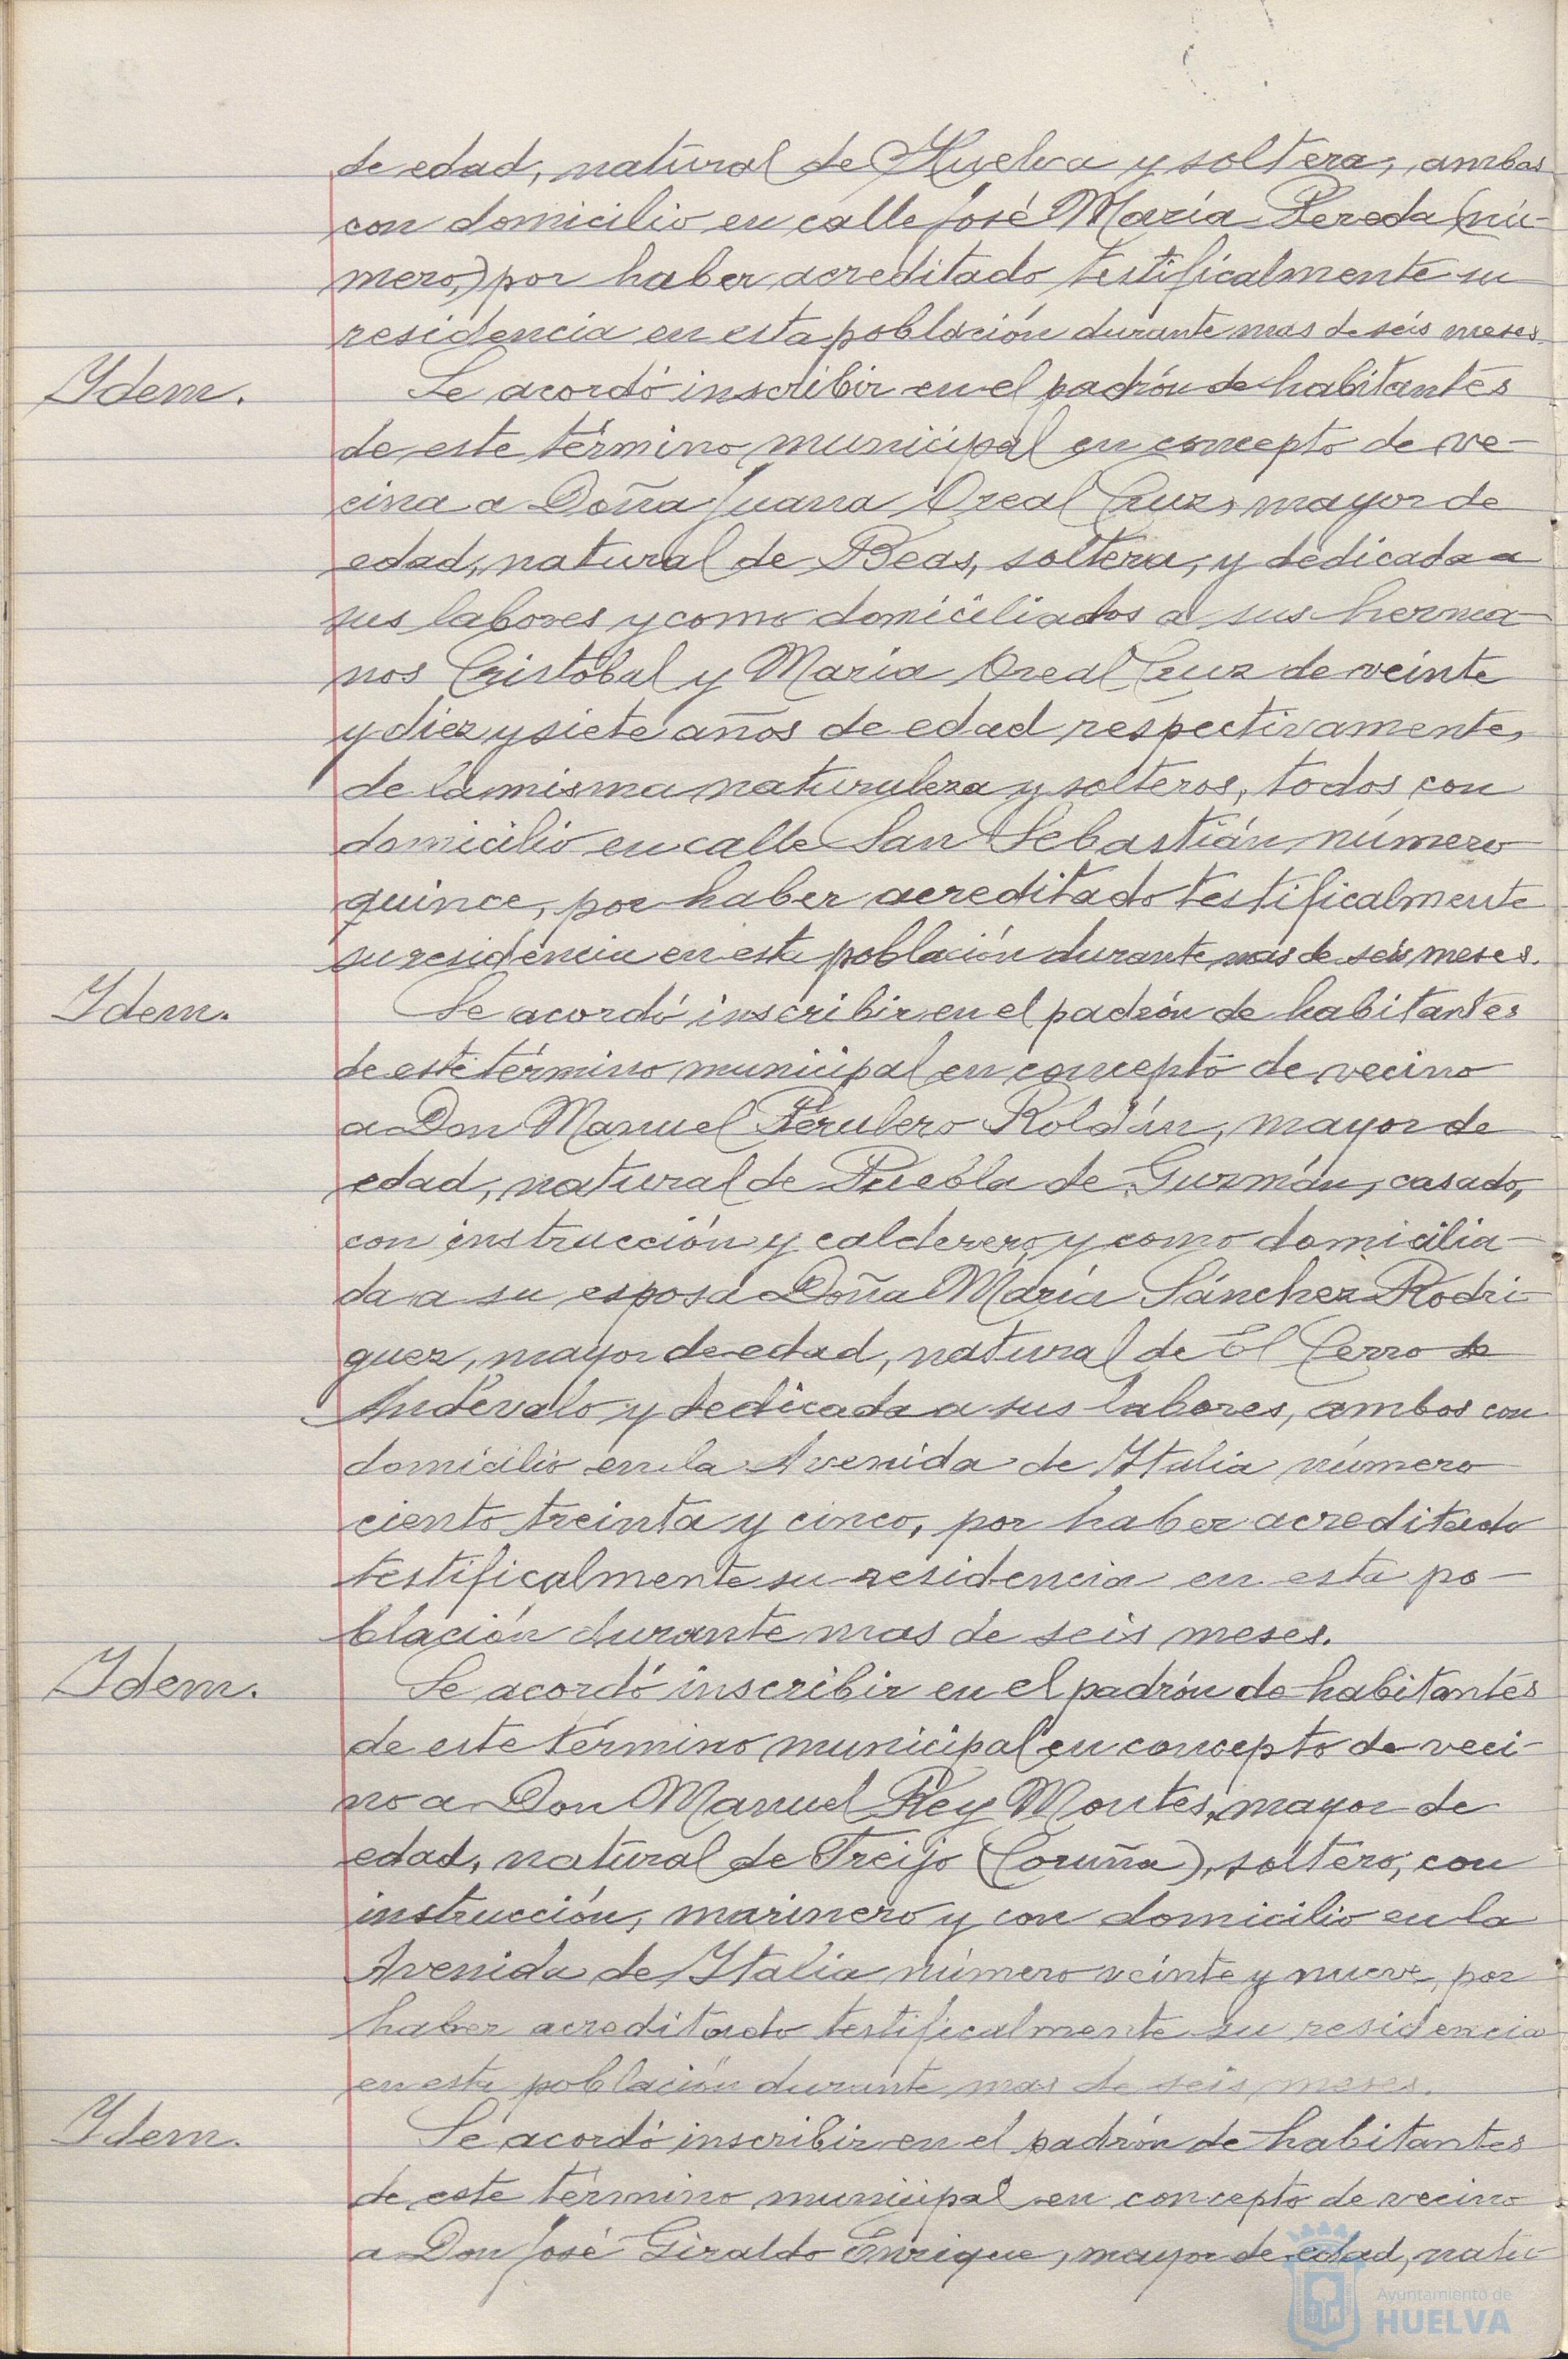 de edad, natural de Huelva y soltera, ambas
con domicilio en calle José María Pereda (nú-
mero,) por haber acreditado testificalmente su
residencia en esta población durante mas de seis meses.
Idem.
Se acordó inscribir en el padrón de habitantes
de este término municipal en concepto de ve-
cina a Doña Juana Oreal Cruz, mayor de
edad, natural de Beas, soltera, y dedicada a
sus labores y como domiciliados a sus herma-
nos Cristóbal y María Oreal Cruz de veinte
y diez y siete años de edad respectivamente,
de la misma naturaleza y solteros, todos con
domicilio en calle San Sebastián número
quince, por haber acreditado testificalmente
su residencia en esta población durante mas de seis meses.
Idem.
Se acordó inscribir en el padrón de habitantes
de este término municipal en concepto de vecino
a Don Manuel Perulero Roldán, mayor de
edad, natural de Puebla de Guzmán, casado,
con instrucción y calderero, y como domicilia-
da a su esposa Doña María Sánchez Rodri-
guez, mayor de edad, natural de El Cerro de
Andévalo y dedicada a sus labores, ambos con
domicilio en la Avenida de Italia número
ciento treinta y cinco, por haber acreditado
testificalmente su residencia en esta po-
blación durante mas de seis meses.
Idem.
Se acordó inscribir en el padrón de habitantes
de este término municipal en concepto de veci-
no a Don Manuel Rey Montes, mayor de
edad, natural de Freijo (Coruña), soltero, con
instrucción, marinero y con domicilio en la
Avenida de Italia número veinte y nueve, por
haber acreditado testificalmente su residencia
en esta población durante mas de seis meses.
Idem.
Se acordó inscribir en el padrón de habitantes
de este término municipal en concepto de vecino
a Don José Giraldo Enrique, mayor de edad, natu-
Ayuntamiento de
HUELVA